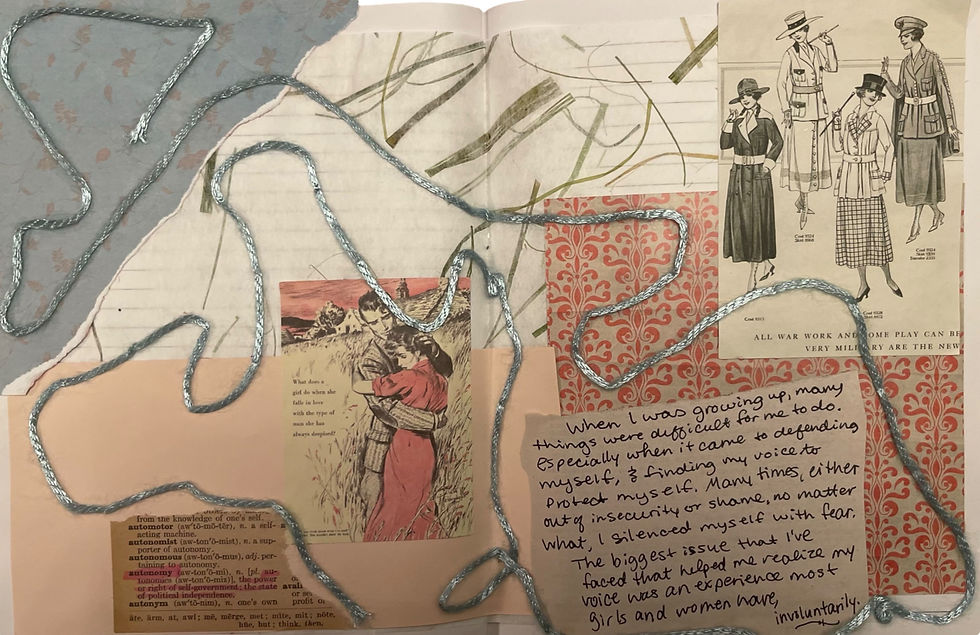 Coat 9324
Skirt 9068
Coat 9324
Skirt 9304
Coat 9313
Coat 9328
ALL WAR WORK AND SOME PLAY CAN BE
VERY MILITARY ARE THE NEW
What does a
girl do when she
falls in love
with the type of
man she has
always despised?
When I was growing up, many
things were difficult for me to do.
Especially when it came to defending
myself, & finding my voice to
Protect myself. Many times, either
out of insecurity or shame, no matter
what, I silenced myself with fear.
The biggest issue that I've
faced that helped me realize my
voice was an experience most
girls and women have,
involuntarily.
from the knowledge of one's self.
automotor (aw'tō-mō-tĕr), n. a self-
acting machine.
autonomist (aw-ton'ō-mist), n. a sup-
porter of autonomy.
autonomous (aw-ton'ō-mus), adj. per-
taining to autonomy.
autonomy (aw-ton'ō-mi), n. [pl. au-
tonomies (aw-ton'ō-miz)], the power
or right of self-government; the state
of political independence.
autonym (aw'tō-nim), n. one's own
āte, ärm, at, awl; mē, mĕrge, met; mīte, mit; nōte,
hūe, hut; think, then.